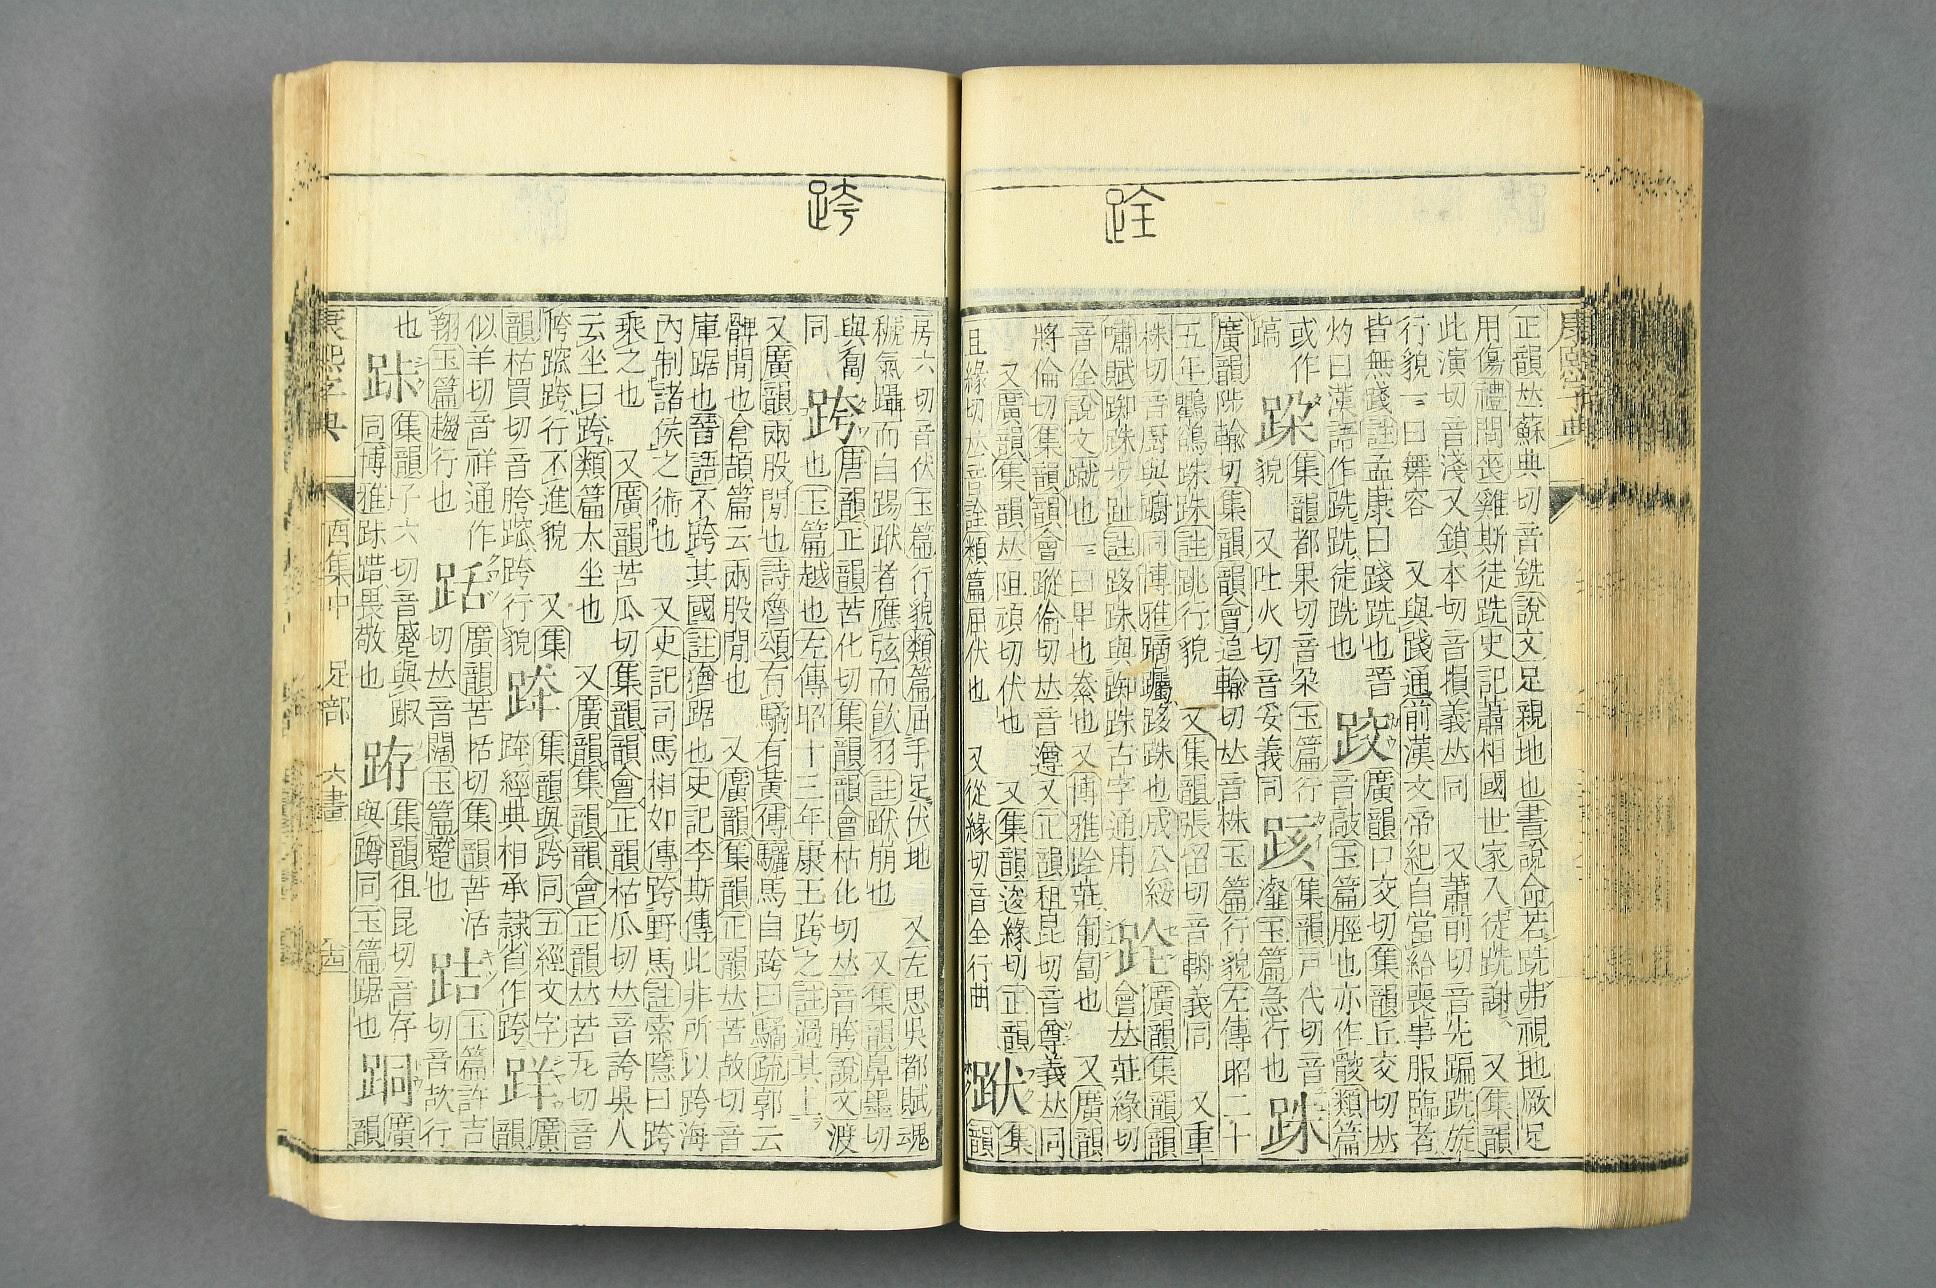 跧
正韻𠀤蘇典切音銑說文足親地也書說命若跣弗視地厥足
用傷禮問喪雞斯徒跣史記蕭相國世家入徒跣謝 又集韻
此演切音淺又鎖本切音損義𠀤同 又蕭前切音先蹁跣旋
行貌一曰舞容 又與踐通前漢文帝紀自當給喪事服臨者
皆無踐註孟康曰踐跣也晉
灼曰漢語作跣跣徒跣也
跤
廣韻口交切集韻丘交切𠀤
音敲玉篇脛也亦作骹類篇
或作
跢
集韻都果切音朶玉篇行
貌 又吐火切音妥義同
跥
集韻戸代切音
瀣玉篇急行也
跦
廣韻陟輸切集韻韻會追輸切𠀤音株玉篇行貌左傳昭二十
五年鸜鵒跦跦註跳行貌 又集韻張留切音輈義同 又重
株切音厨與躕同博雅蹢躅跢跦也成公綏
嘯賦踟跦步趾註跢跦與踟跦古字通用
跧
廣韻集韻韻
會𠀤莊緣切
音佺說文蹴也一曰卑也絭也又博雅跧莊匍匐也 又廣韻
將倫切集韻韻會蹤倫切𠀤音遵又正韻租昆切音尊義𠀤同
又廣韻集韻𠀤阻頑切伏也 又集韻逡緣切正韻
且緣切𠀤音詮類篇屈伏也 又從緣切音全行曲
跱
集
韻
跨
房六切音伏玉篇行貌類篇屈手足伏地 又左思吳都賦魂
褫氣躡而自踢跌者應弦而飮羽註跌崩也 又集韻鼻墨切
與匐
同
跨
唐韻正韻苦化切集韻韻會枯化切𠀤音胯說文渡
也玉篇越也左傳昭十三年康王跨之註過其上
又廣韻兩股閒也詩魯頌有驈有黃傳驪馬自跨曰驈疏郭云
髀閒也倉頡篇云兩股閒也 又廣韻集韻正韻𠀤苦故切音
庫踞也晉語不跨其國註猶踞也史記李斯傳此非所以跨海
內制諸侯之術也 又史記司馬相如傳跨野馬註索隱曰跨
乘之也 又廣韻苦瓜切集韻韻會正韻枯瓜切𠀤音誇吳人
云坐曰跨類篇大坐也 又廣韻集韻韻會正韻𠀤苦瓦切音
骻𨇨跨行不進貌 又集
韻枯買切音胯𨇨跨行貌
跨
集韻與跨同五經文字
跨經典相承隷省作跨
跘
廣
韻
似羊切音祥通作
翔玉篇趨行也
𧿼
廣韻苦括切集韻苦活
切𠀤音闊玉篇躄也
趌
玉篇許吉
切音欯行
也
𧿳
集韻子六切音蹙與踧
同博雅𧿳踖畏敬也
𨀛
集韻徂昆切音存
與蹲同玉篇踞也
跼
廣
韻
康熙字典
酉集中 足部 六畫